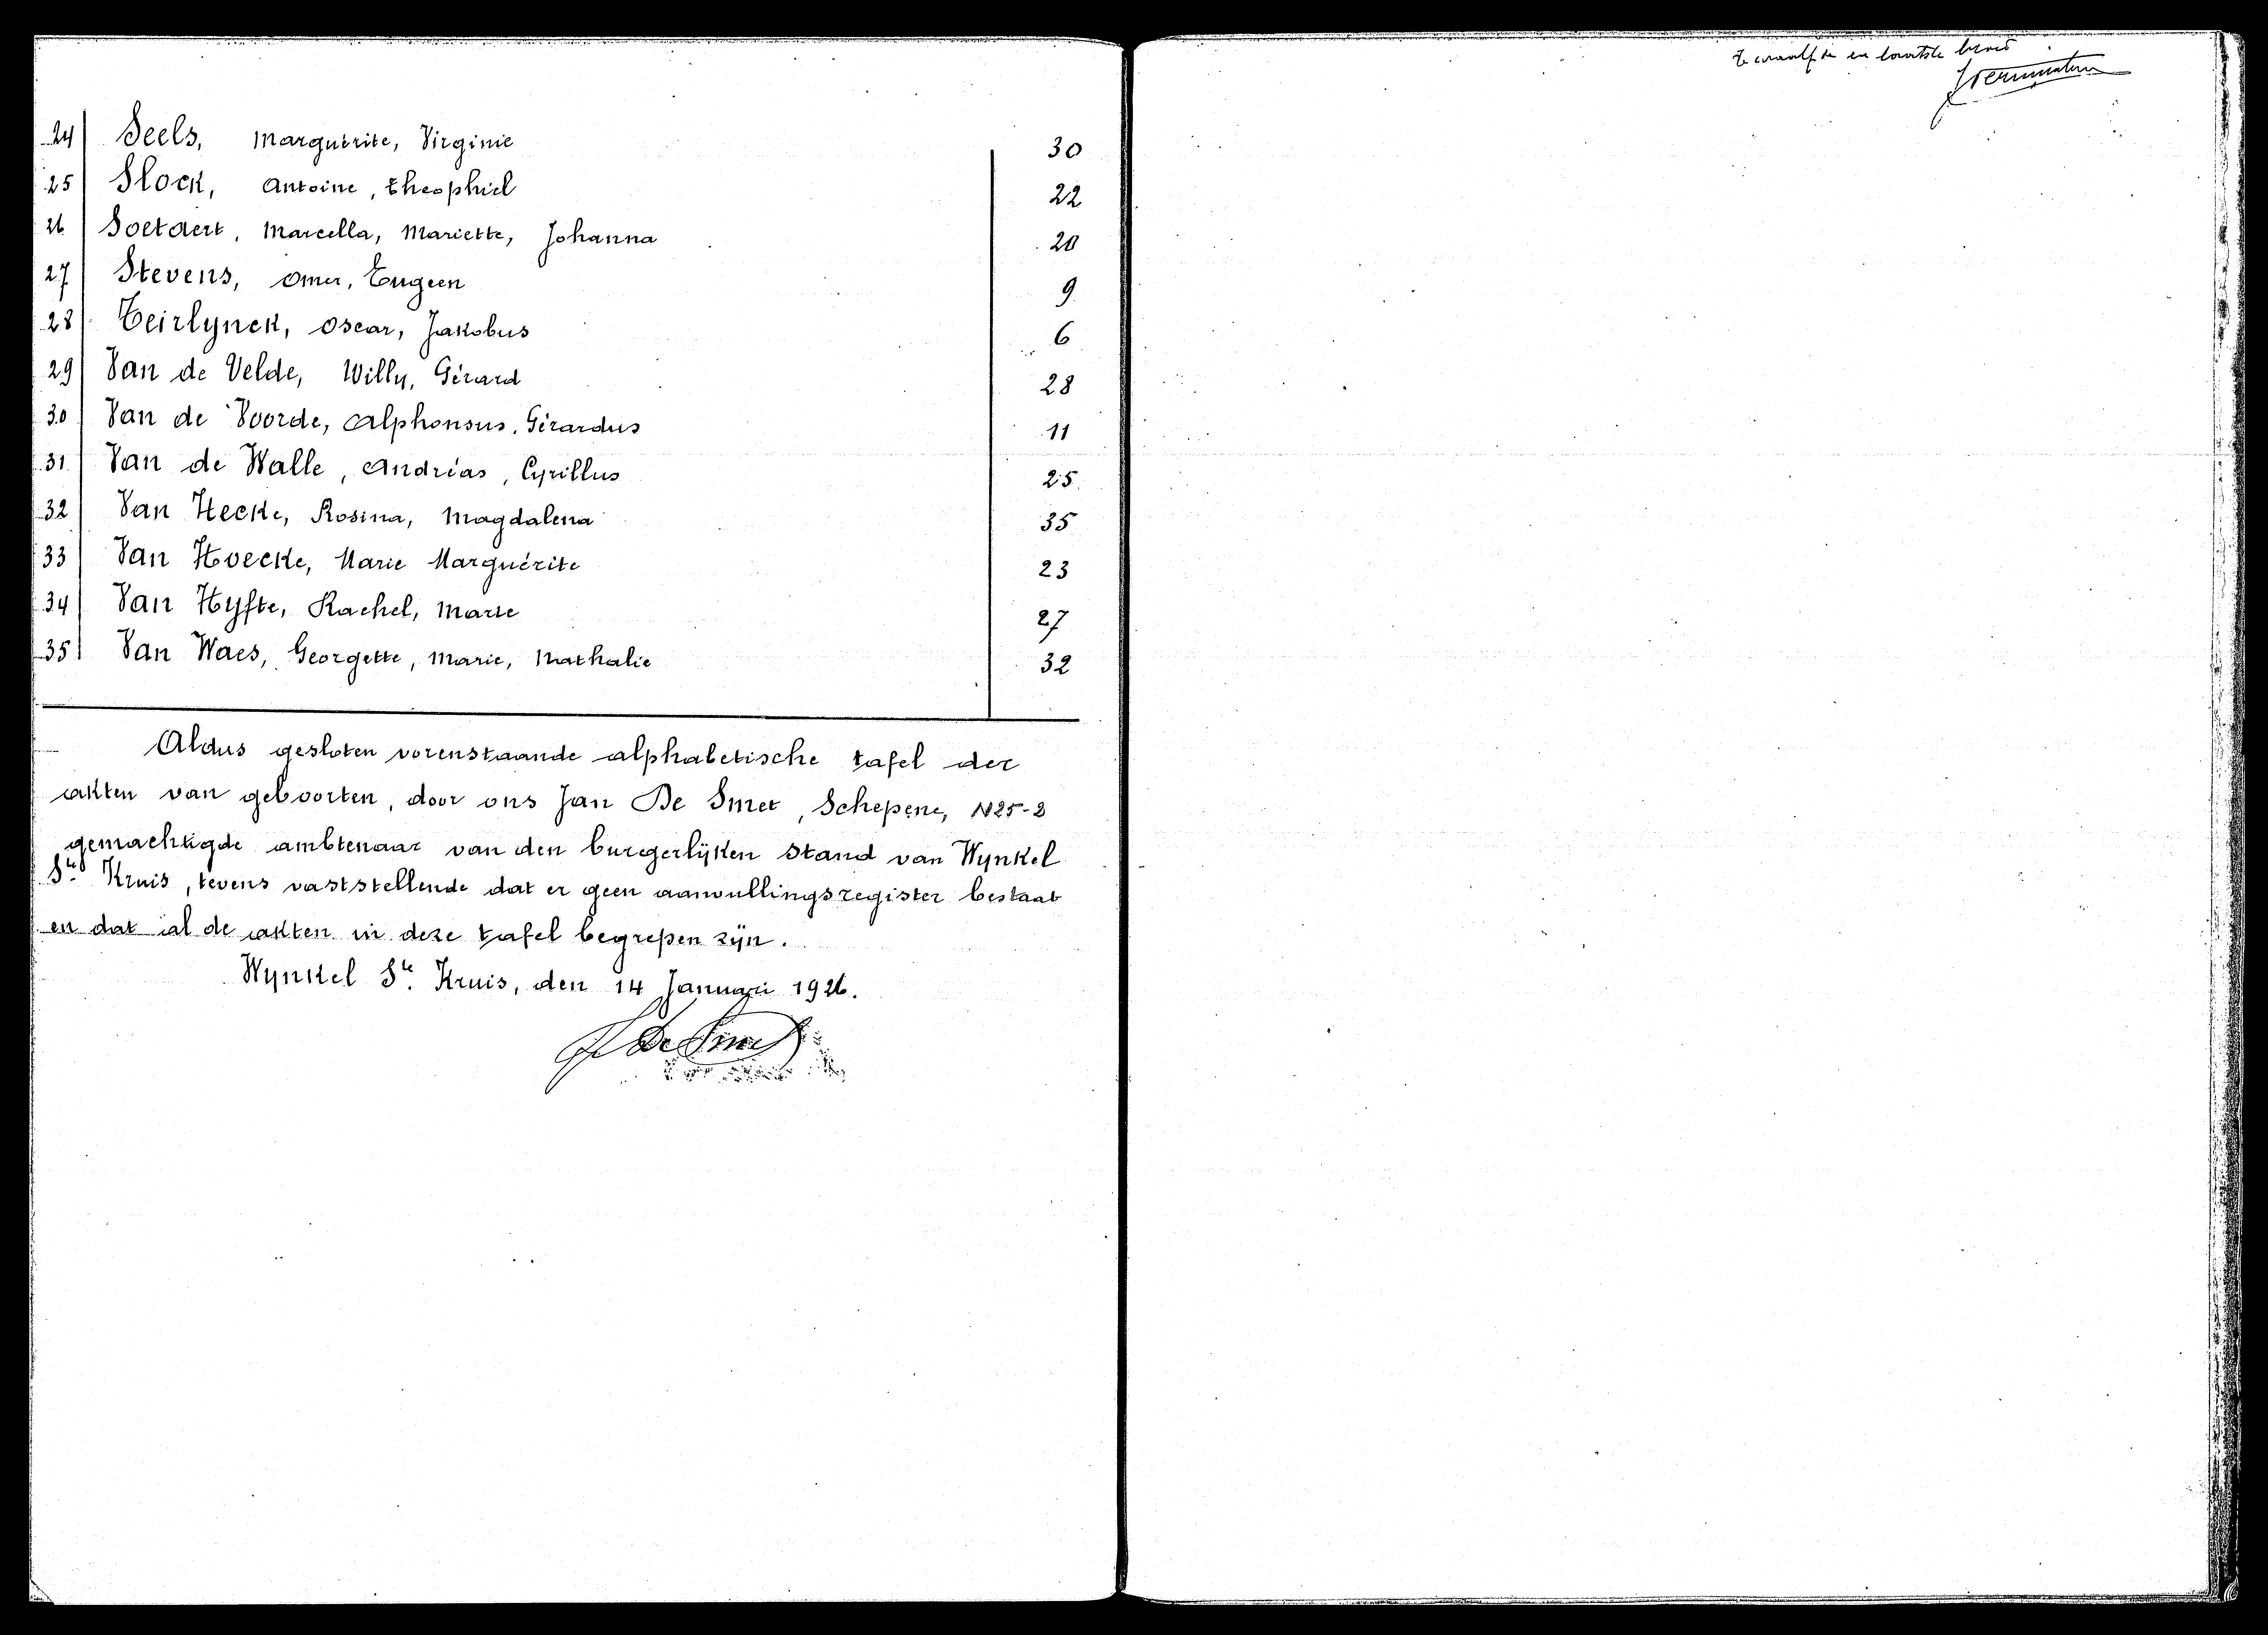 24 Seels, Marguerite, Virginie 30
25 Slock, Antoine, Theophiel 22
26 Soetaert, Marcella, Mariette, Johanna 20
27 Stevens, Omer, Eugeen 9
28 Teirlynck, Oscar, Jakobus 6
29 Van de Velde, Willy, Gérard 28
30 Van de Voorde, Alphonsus, Gérardus 11
31 Van de Walle, Andréas, Cyrillus 25
32 Van Hecke, Rosina, Magdalena 35
33 Van Hoecke, Marie Marguérite 23
34 Van Hyfte, Rachel, Marie 27
35 Van Waes, Georgette, Marie, Nathalie 32
Aldus gesloten vorenstaande alphabetische tafel der
akten van geboorten, door ons Jan De Smet, Schepene, N25-2
gemachtigde ambtenaar van den burgerlijken stand van Wynkel
Ste Kruis, tevens vaststellende dat er geen aanvullingsregister bestaat
en dat al de akten in deze tafel begrepen zijn.
Wynkel Ste Kruis, den 14 Januari 1926.
J De Smet
Twaalfde en laatste blad